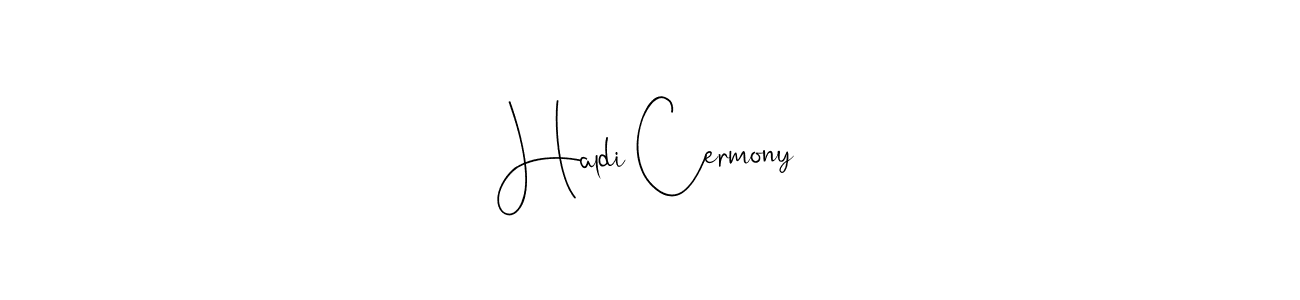 Haldi Cermony